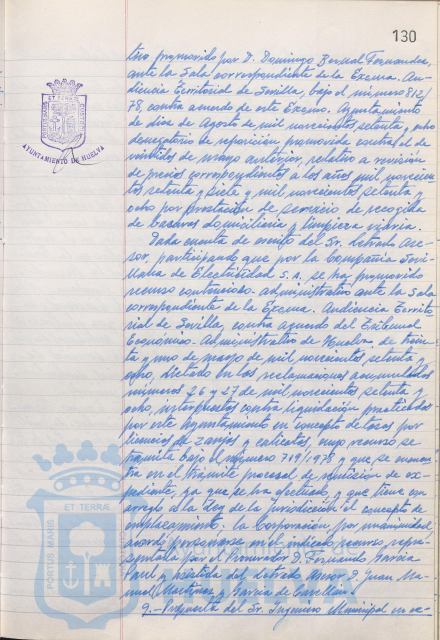 130
tivo promovido por D. Domingo Bernal Fernandez,
ante la Sala correspondiente de la Excma. Au-
diencia Territorial de Sevilla, bajo el número 812/
78, contra acuerdo de este Excmo. Ayuntamiento
de diez de Agosto de mil novecientos setenta y ocho
denegatorio de reposición promovida contra el de
veintidos de mayo anterior, relativo a revisión
de precios correspondientes a los años mil novecien-
tos setenta y siete y mil novecientos setenta y
ocho por prestación de servicio de recogida
de basuras domiciliaria y limpieza viaria.
Dada cuenta de escrito del Sr. Letrado Ase-
sor, participando que por la Compañia Sevi-
llana de Electricidad S.A. se ha promovido
recurso contencioso-administrativo ante la Sala
correspondiente de la Excma. Audiencia Territo-
rial de Sevilla, contra acuerdo del Tribunal
Economico-Administrativo de Huelva, de trein-
ta y uno de mayo de mil novecientos setenta y
ocho, dictado en las reclamaciones acumuladas
números 26 y 27 de mil novecientos setenta y
ocho, interpuestas contra liquidación practicadas
por este Ayuntamiento en concepto de tasas por
licencias de zanjas y calicatas, cuyo recurso se
tramita bajo el número 719/1978 y que se encuen-
tra en el trámite procesal de remisión de ex-
pediente, ya que se ha efectuado, y que tiene con
arreglo a la Ley de la Jurisdicción el concepto de
emplazamiento. La Corporación, por unanimidad,
acordó personarse en el indicado recurso, repre-
sentada por el Procurador D. Fernando García
Paul y asistida del Letrado Asesor D. Juan Ma-
nuel Martinez y García de
9.- Propuesta del Sr. Ingeniero Municipal en ex-
PORTUS MARIS ET TERRÆ
AYUNTAMIENTO DE HUELVA
PORTUS MARIS ET TERRÆ
Ayuntamiento de